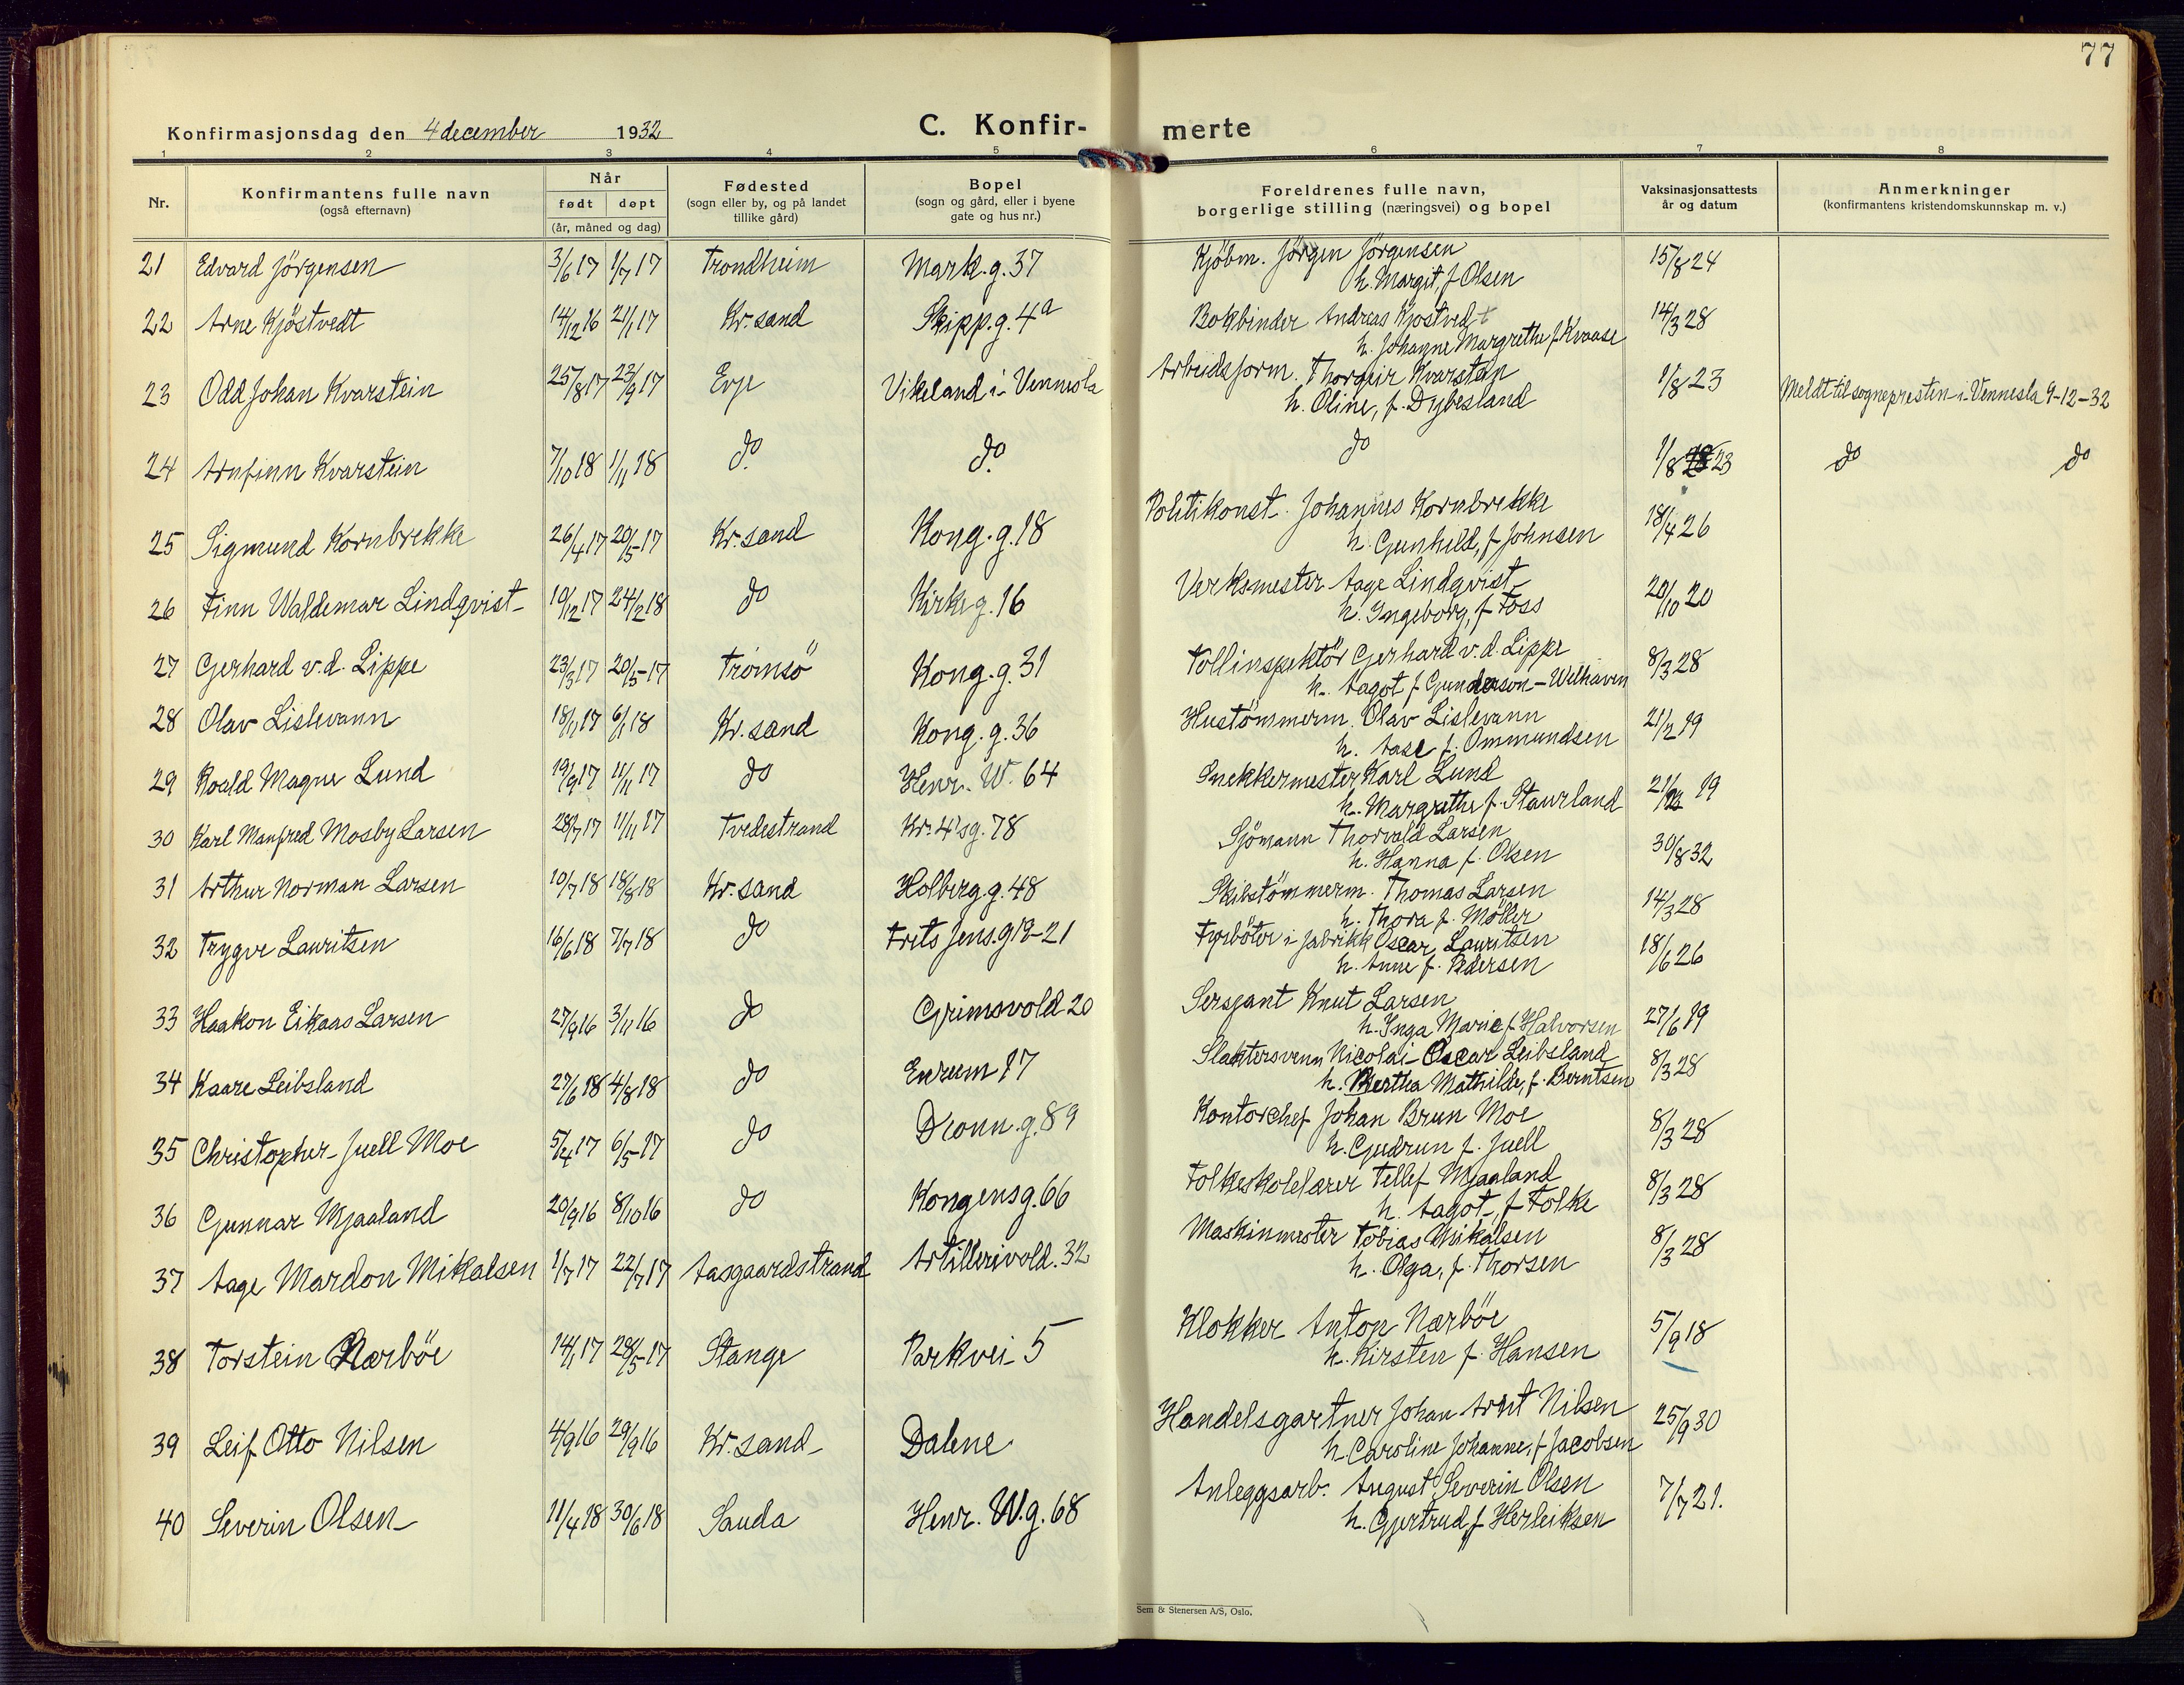 77
Konfirmasjonsdag den 4 december 1932 C. Konfir- merte
1 2 3 4 5 6 7 8
Nr. Konfirmantens fulle navn (også efternavn) Når født døpt (år, måned og dag) Fødested (sogn eller by, og på landet tillike gård) Bopel (sogn og gård, eller i byene gate og hus nr.) Foreldrenes fulle navn, borgerlige stilling (næringsvei) og bopel Vaksinasjonsattests år og datum Anmerkninger (konfirmantens kristendomskunnskap m. v.)
21 Edvard Jörgensen 3/6 17 1/7 17 Trondheim Mark.g. 37 Kjöbm. Jörgen Jörgensen 15/8 24
h. Margit, f Olsen
22 Arne Kjöstvedt 14/12 16 21/1 17 Kr.sand Skipp.g. 4a Bokbinder Andreas Kjöstvedt 14/3 28
h. Johanne Margrethe f Kvaase
23 Odd Johan Kvarstein 25/8 17 23/9 17 Evje Vikeland i Vennesla Arbeidsform. Thorgeir Kvarstein 1/8 23 Meldt til sognepresten i Vennesla 9-12-32
h. Oline, f. Dybesland
24 Arnfinn Kvarstein 7/10 18 1/11 18 do do do 1/8 23 do do
25 Sigmund Kornbrekke 26/4 17 20/5 17 Kr.sand Kong.g. 18 Politikonst. Johannes Kornbrekke 18/4 26
h. Gunhild, f Johnsen
26 Finn Waldemar Lindqvist 10/12 17 24/2 18 do Kirkeg. 16 Verksmester Aage Lindqvist 20/10 20
h. Ingeborg, f. Foss
27 Gerhard v.d. Lippe 23/3 17 20/5 17 Tromsö Kong.g. 31 Tollinspektör Gerhard v.d. Lippe 8/3 28
h. Aagot f Gunderson-Welhaven
28 Olav Lislevann 18/11 17 6/1 18 Kr.sand Kong.g. 36 Hustömmerm. Olav Lislevann 21/2 19
h. Aase f. Ommundsen
29 Roald Magne Lund 19/9 17 11/11 17 do Henr. W. 64 Snekkermester Karl Lund 21/2 19
h. Margrethe f. Staurland
30 Karl Manfred Mosby Larsen 28/7 17 11/11 17 Tvedestrand Kr. 4's g. 78 Sjömann Thorvald Larsen 30/8 32
h. Hanna f. Olsen
31 Arthur Norman Larsen 10/7 18 18/8 18 Kr.sand Holberg.g. 48 Skibstömmerm. Thomas Larsen 14/3 28
h. Thora f. Möller
32 Trygve Lauritsen 16/6 18 7/7 18 do Frits Jens.g 19-21 Fyrböter i fabrikk Oscar Lauritsen 18/6 26
h. Anne f. Pedersen
33 Haakon Eikaas Larsen 27/9 16 3/11 16 do Grimsvold 20 Sersjant Knut Larsen 27/6 19
h. Inga Marie f Halvorsen
34 Kaare Leibsland 27/6 18 4/8 18 do Enrum 17 Slaktersvenn Nicolai Oscar Leibsland 8/3 28
h. Bertha Mathilde, f. Berntsen
35 Christopher Juell Moe 5/4 17 6/5 17 do Dronn.g. 89 Kontorchef Johan Brun Moe 8/3 28
h. Gudrun f. Juell
36 Gunnar Mjaaland 20/9 16 8/10 16 do Kongensg. 66 Folkeskolelærer Tellef Mjaaland 8/3 28
h. Aagot, f Folke
37 Aage Mardon Mikalsen 1/7 17 22/7 17 Aasgaardstrand Artillerivold. 32 Maskinmester Tobias Mikalsen 8/3 28
h. Olga, f. Thorsen
38 Torstein Nærböe 14/1 17 28/5 17 Stange Parkvei 5 Klokker Anton Nærböe 5/9 18
h. Kirsten f. Hansen
39 Leif Otto Nilsen 4/9 16 29/9 16 Kr.sand Dalene Handelsgartner Johan Arnt Nilsen 25/9 30
h. Caroline Johanne, f Jacobsen
40 Severin Olsen 11/4 18 30/6 18 Sauda Henr. W.g. 68 Anleggsarb. August Severin Olsen 7/7 21.
h. Gjertrud f Herleiksen
Sem & Stenersen A/S, Oslo.